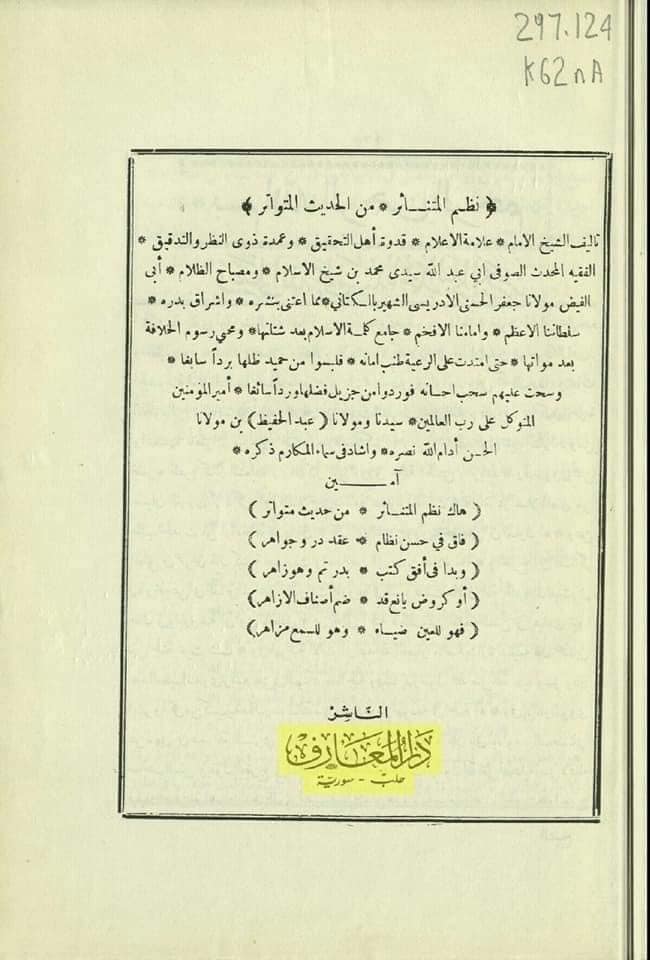 297.124
K62nA
﴿ نظـم المتنـاثر * من الحديث المتواتر ﴾
تأليف الشيخ الامام * علامة الاعلام * قدوة أهل التحقيق * وعمدة ذوى النظر والتدقيق *
الفقيه المحدث الصوفى ابي عبد الله سيدى محمد بن شيخ الاسلام * ومصباح الظلام * أبى
الفيض مولانا جعفر الحسنى الادريسى الشهير بالكتانى * مما اعتنى بنشره * واشراق بدره *
سلطاننا الاعظم * وامامنا الافخم * جامع كلمة الاسلام بعد شتاتها * ومحيي رسوم الخلافة
بعد مواتها * حتى امتدت على الرعية طنب امانه * فلبسوا من حميد ظلها برداً سابغا *
وسحت عليهم سحب احسانه فوردوا من جزيل فضلها ورداً سائغا * أمير المؤمنين
المتوكل على رب العالمين * سيدنا ومولانا ( عبد الحفيظ ) بن مولانا
الحسن أدام الله نصره * واشاد فى سماء المكارم ذكره *
آمــــين
( هاك نظم المتنـاثر * من حديث متواتر )
( فاق في حسن نظام * عقد در وجواهر )
( وبدا فى أفق كتب * بدر تم وهو زاهر )
( أو كروض يانع قد * ضم أصناف الازاهر )
( فهو للعين ضيـاء * وهو للسمع مزاهر )
النَّاشِرْ
دَارُ المَعَارِفْ
حلبْ - سوريّة